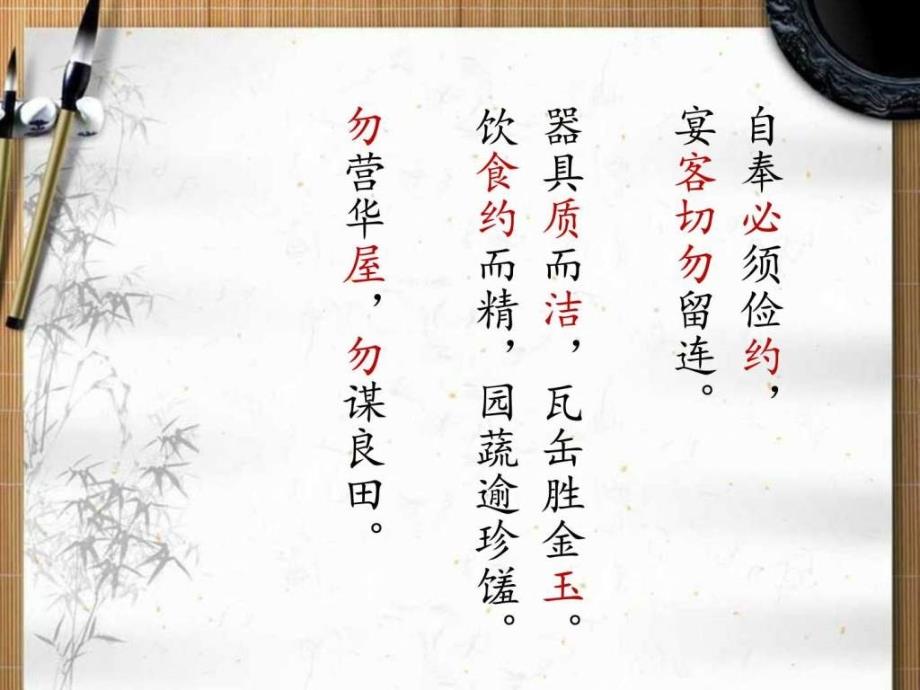 自奉必须俭约，
宴客切勿留连。
器具质而洁，瓦缶胜金玉。
饮食约而精，园蔬逾珍馐。
勿营华屋，勿谋良田。